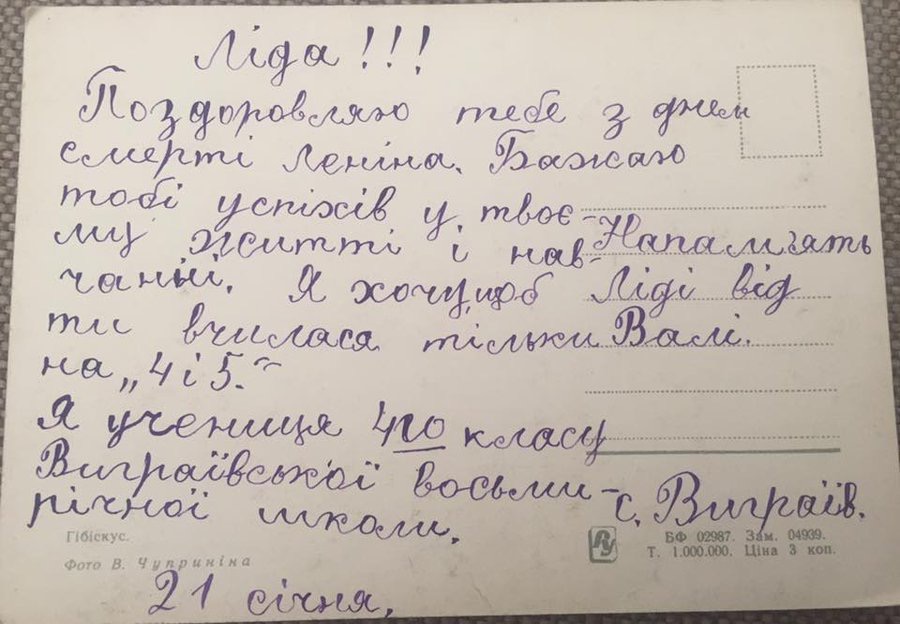 Ліда!!!
Поздоровляю тебе з днем
смерті Леніна. Бажаю
тобі успіхів у твоє-
му житті і нав-
чанні. Я хочу,щоб
ти вчилася тільки
на „4 і 5.“
Я учениця 4го класу
Виграївської восьми-
річної школи.
21 січня.
Напам'ять
Ліді від
Валі.
с. Виграїв.
Гібіскус.
Фото В. Чуприніна
РУ
БФ 02987. Зам. 04939.
Т. 1.000.000. Ціна 3 коп.